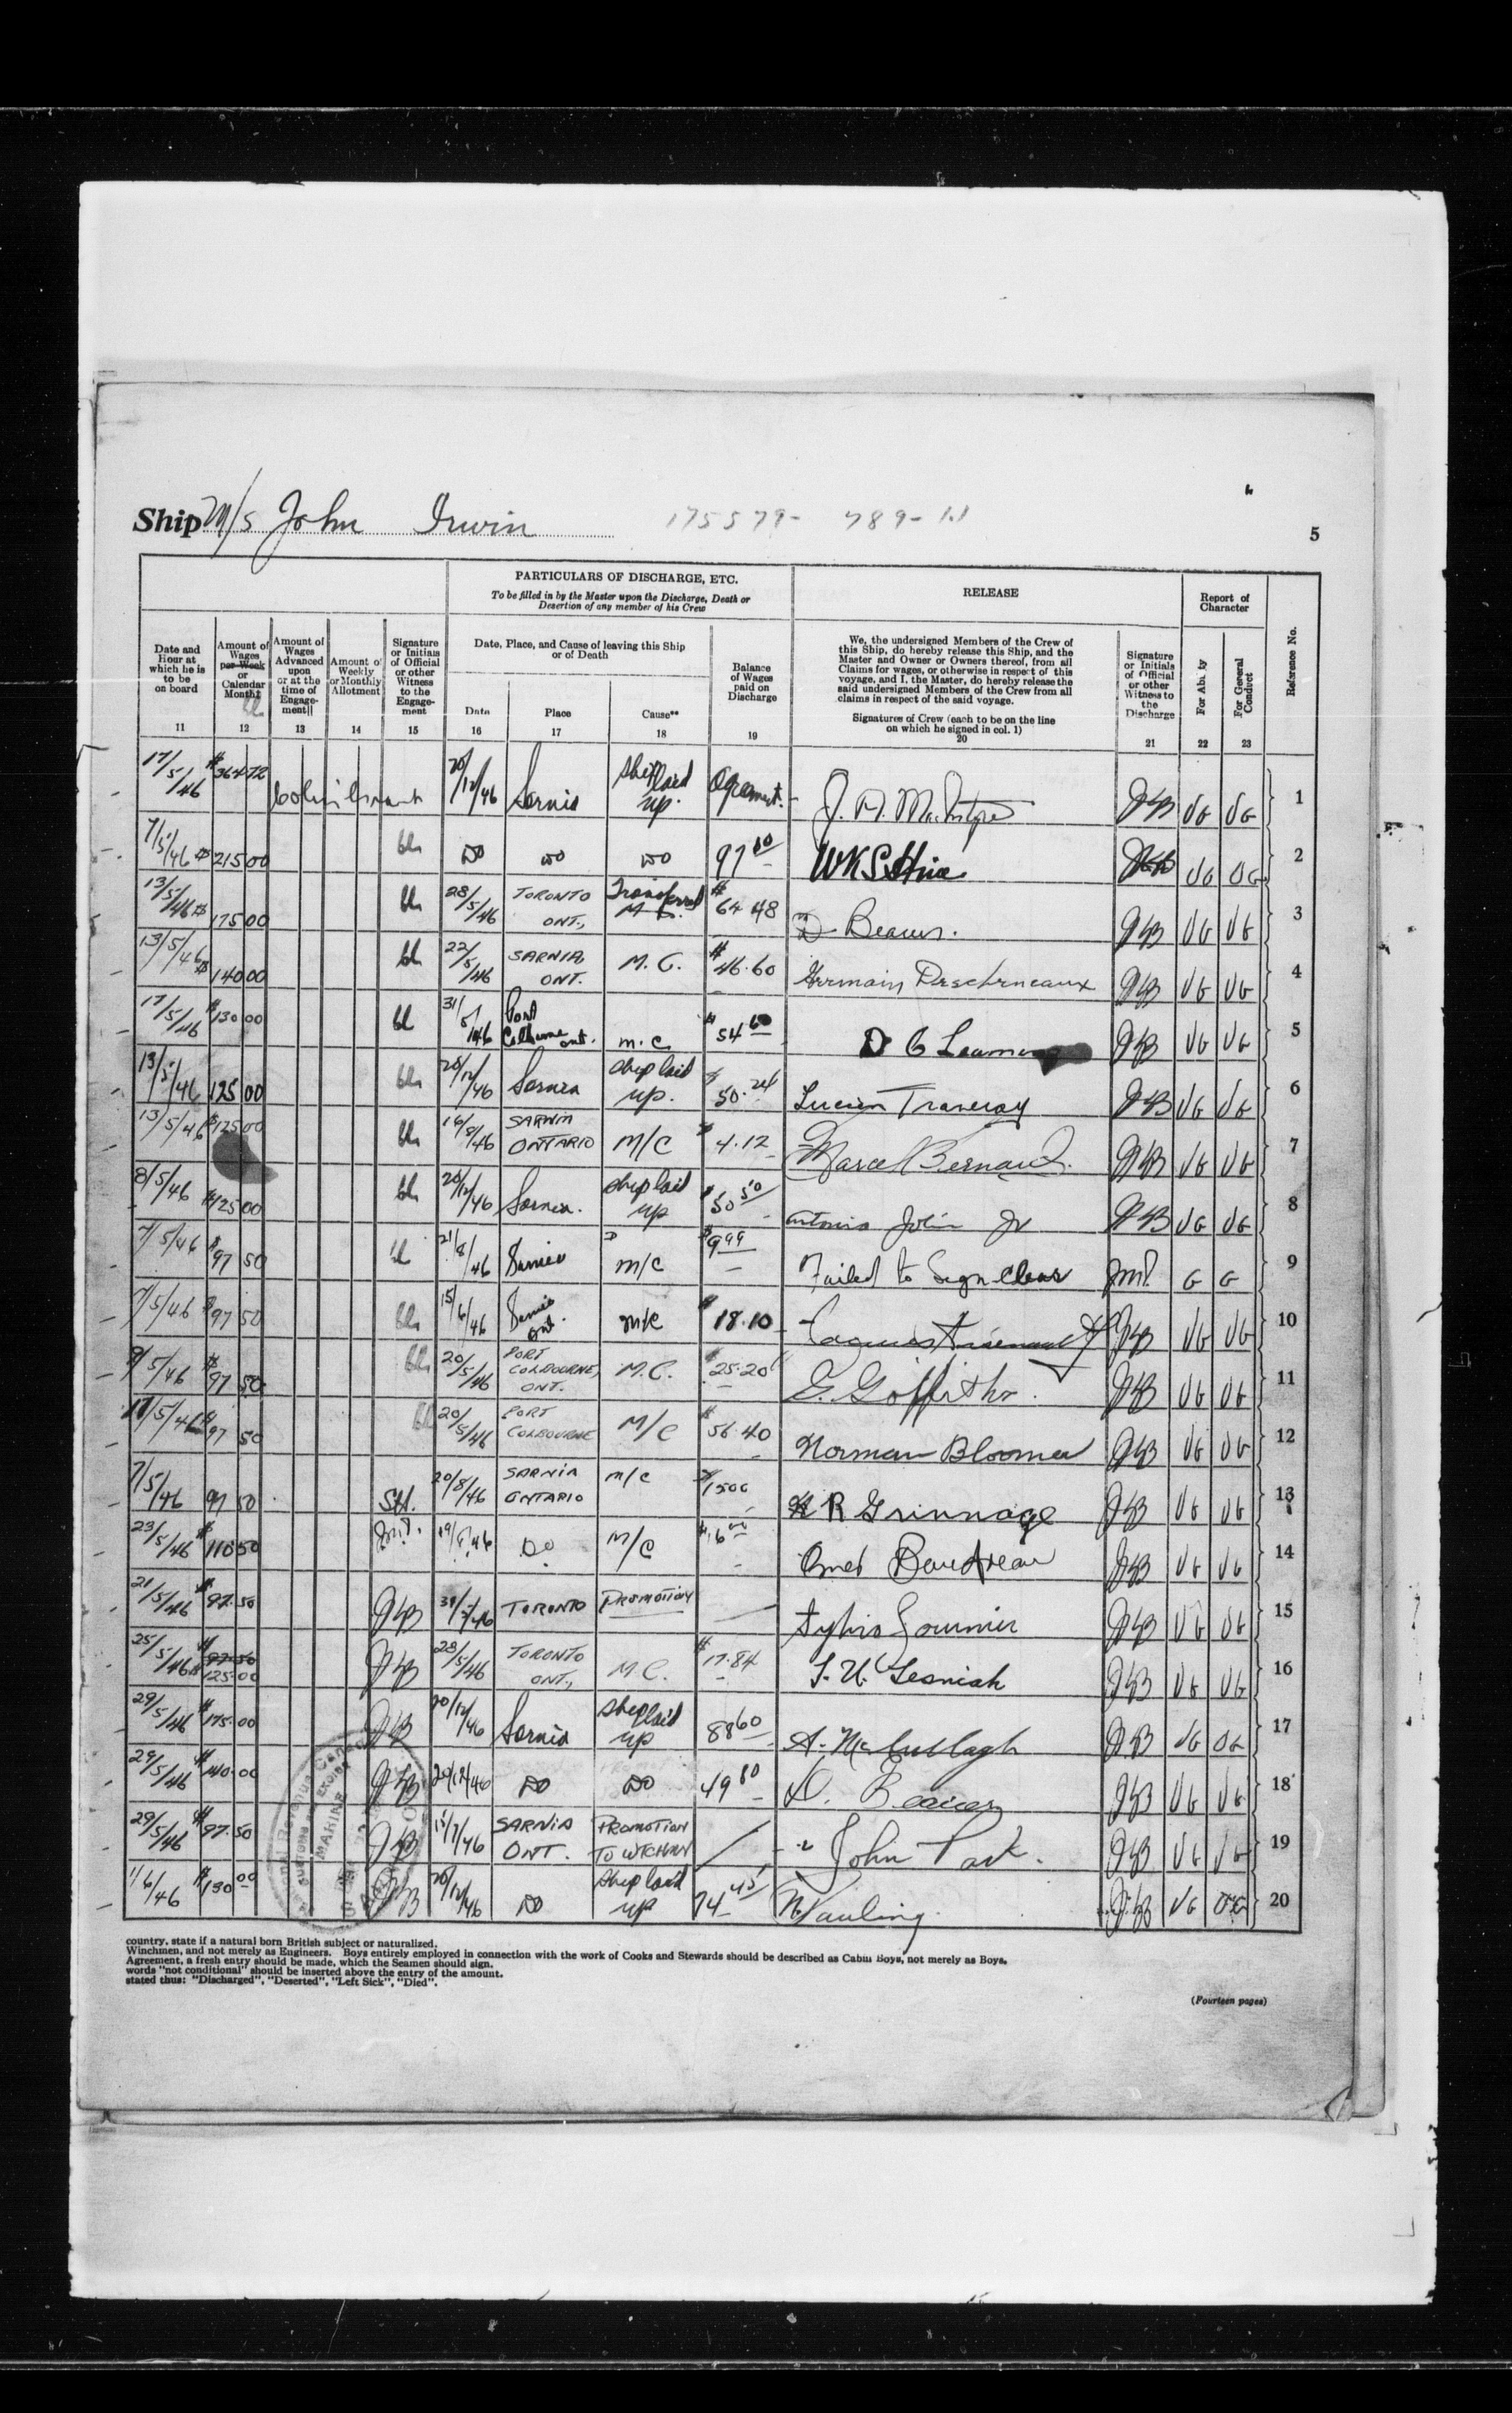 Ship M/S John Irwin 175579- 789-
5
PARTICULARS OF DISCHARGE, ETC.
To be filled in by the Master upon the Discharge, Death or
Desertion of any member of his Crew
RELEASE
Report of
Character
Reference No.
Date and
Hour at
which he is
to be
on board
11
Amount of
Wages
per Week
or
Calendar
Month‡
12
Amount of
Wages
Advanced
upon
or at the
time of
Engage-
ment||
13
Amount of
Weekly
or Monthly
Allotment
14
Signature
or Initials
of Official
or other
Witness
to the
Engage-
ment
15
Date, Place, and Cause of leaving this Ship
or of Death
Date
16
Place
17
Cause**
18
Balance
of Wages
paid on
Discharge
19
We, the undersigned Members of the Crew of
this Ship, do hereby release this Ship, and the
Master and Owner or Owners thereof, from all
Claims for wages, or otherwise in respect of this
voyage, and I, the Master, do hereby release the
said undersigned Members of the Crew from all
claims in respect of the said voyage.
Signatures of Crew (each to be on the line
on which he signed in col. 1)
20
Signature
or Initials
of Official
or other
Witness to
the
Discharge
21
For Ability
22
For General
Conduct
23
17/5/46 $364.72 20/12/46 Sarnia Ship laid up. Agremnt. VG VG 1
7/5/46 $215 00 DO DO DO 97 80 VG VG 2
13/5/46 $175 00 28/5/46 TORONTO ONT., Transferred $64.48 D. Beaver. VG VG 3
13/5/46 $140 00 22/5/46 SARNIA ONT. M.C. $46.60 Germain VG VG 4
17/5/46 $130 00 31/5/46 Port Colborne ont. m.c. $54 60 VG VG 5
13/5/46 125 00 20/12/46 Sarnia Ship laid up. $50.24 Lucien VG VG 6
13/5/46 $125 00 16/8/46 SARNIA ONTARIO M/C $4.12 Marcel Bernard. VG VG 7
8/5/46 $125 00 20/12/46 Sarnia. Ship laid up $50 50 VG VG 8
7/5/46 $97 50 21/8/46 Sarnia m/c $9 99 Failed to Sign Clear G G 9
7/5/46 $97 50 15/6/46 Sarnia ont. m/c $18.10 VG VG 10
9/5/46 $97 50 20/5/46 PORT COLBOURNE, ONT. M.C. $25.20 G. Griffiths. VG VG 11
17/5/46 $97 50 20/5/46 PORT COLBOURNE M/C $56.40 Norman Bloomer VG VG 12
7/5/46 97 50 20/8/46 SARNIA ONTARIO m/c $1500 R Grinnage VG VG 13
23/5/46 $110 50 DO M/C Omer Boudreau VG VG 14
21/5/46 $97.50 TORONTO PROMOTION Sylvio Fournier VG VG 15
25/5/46 $97.50 125.00 28/5/46 TORONTO ONT., M.C. $17.84 Lesniak VG VG 16
29/5/46 $175.00 20/12/46 Sarnia Ship laid up 88 60 A. McCullagh VG VG 17
29/5/46 $140.00 20/12/46 DO DO 49 80 D. Beaver VG VG 18
29/5/46 $97.50 15/7/46 SARNIA ONT. PROMOTION TO WTCHMN John Park. VG VG 19
1/6/46 $130 00 20/12/46 DO Ship laid up 74 45 VG VG 20
country, state if a natural born British subject or naturalized.
Winchmen, and not merely as Engineers. Boys entirely employed in connection with the work of Cooks and Stewards should be described as Cabin Boys, not merely as Boys.
Agreement, a fresh entry should be made, which the Seamen should sign.
words "not conditional" should be inserted above the entry of the amount.
stated thus: "Discharged", "Deserted", "Left Sick", "Died".
(Fourteen pages)